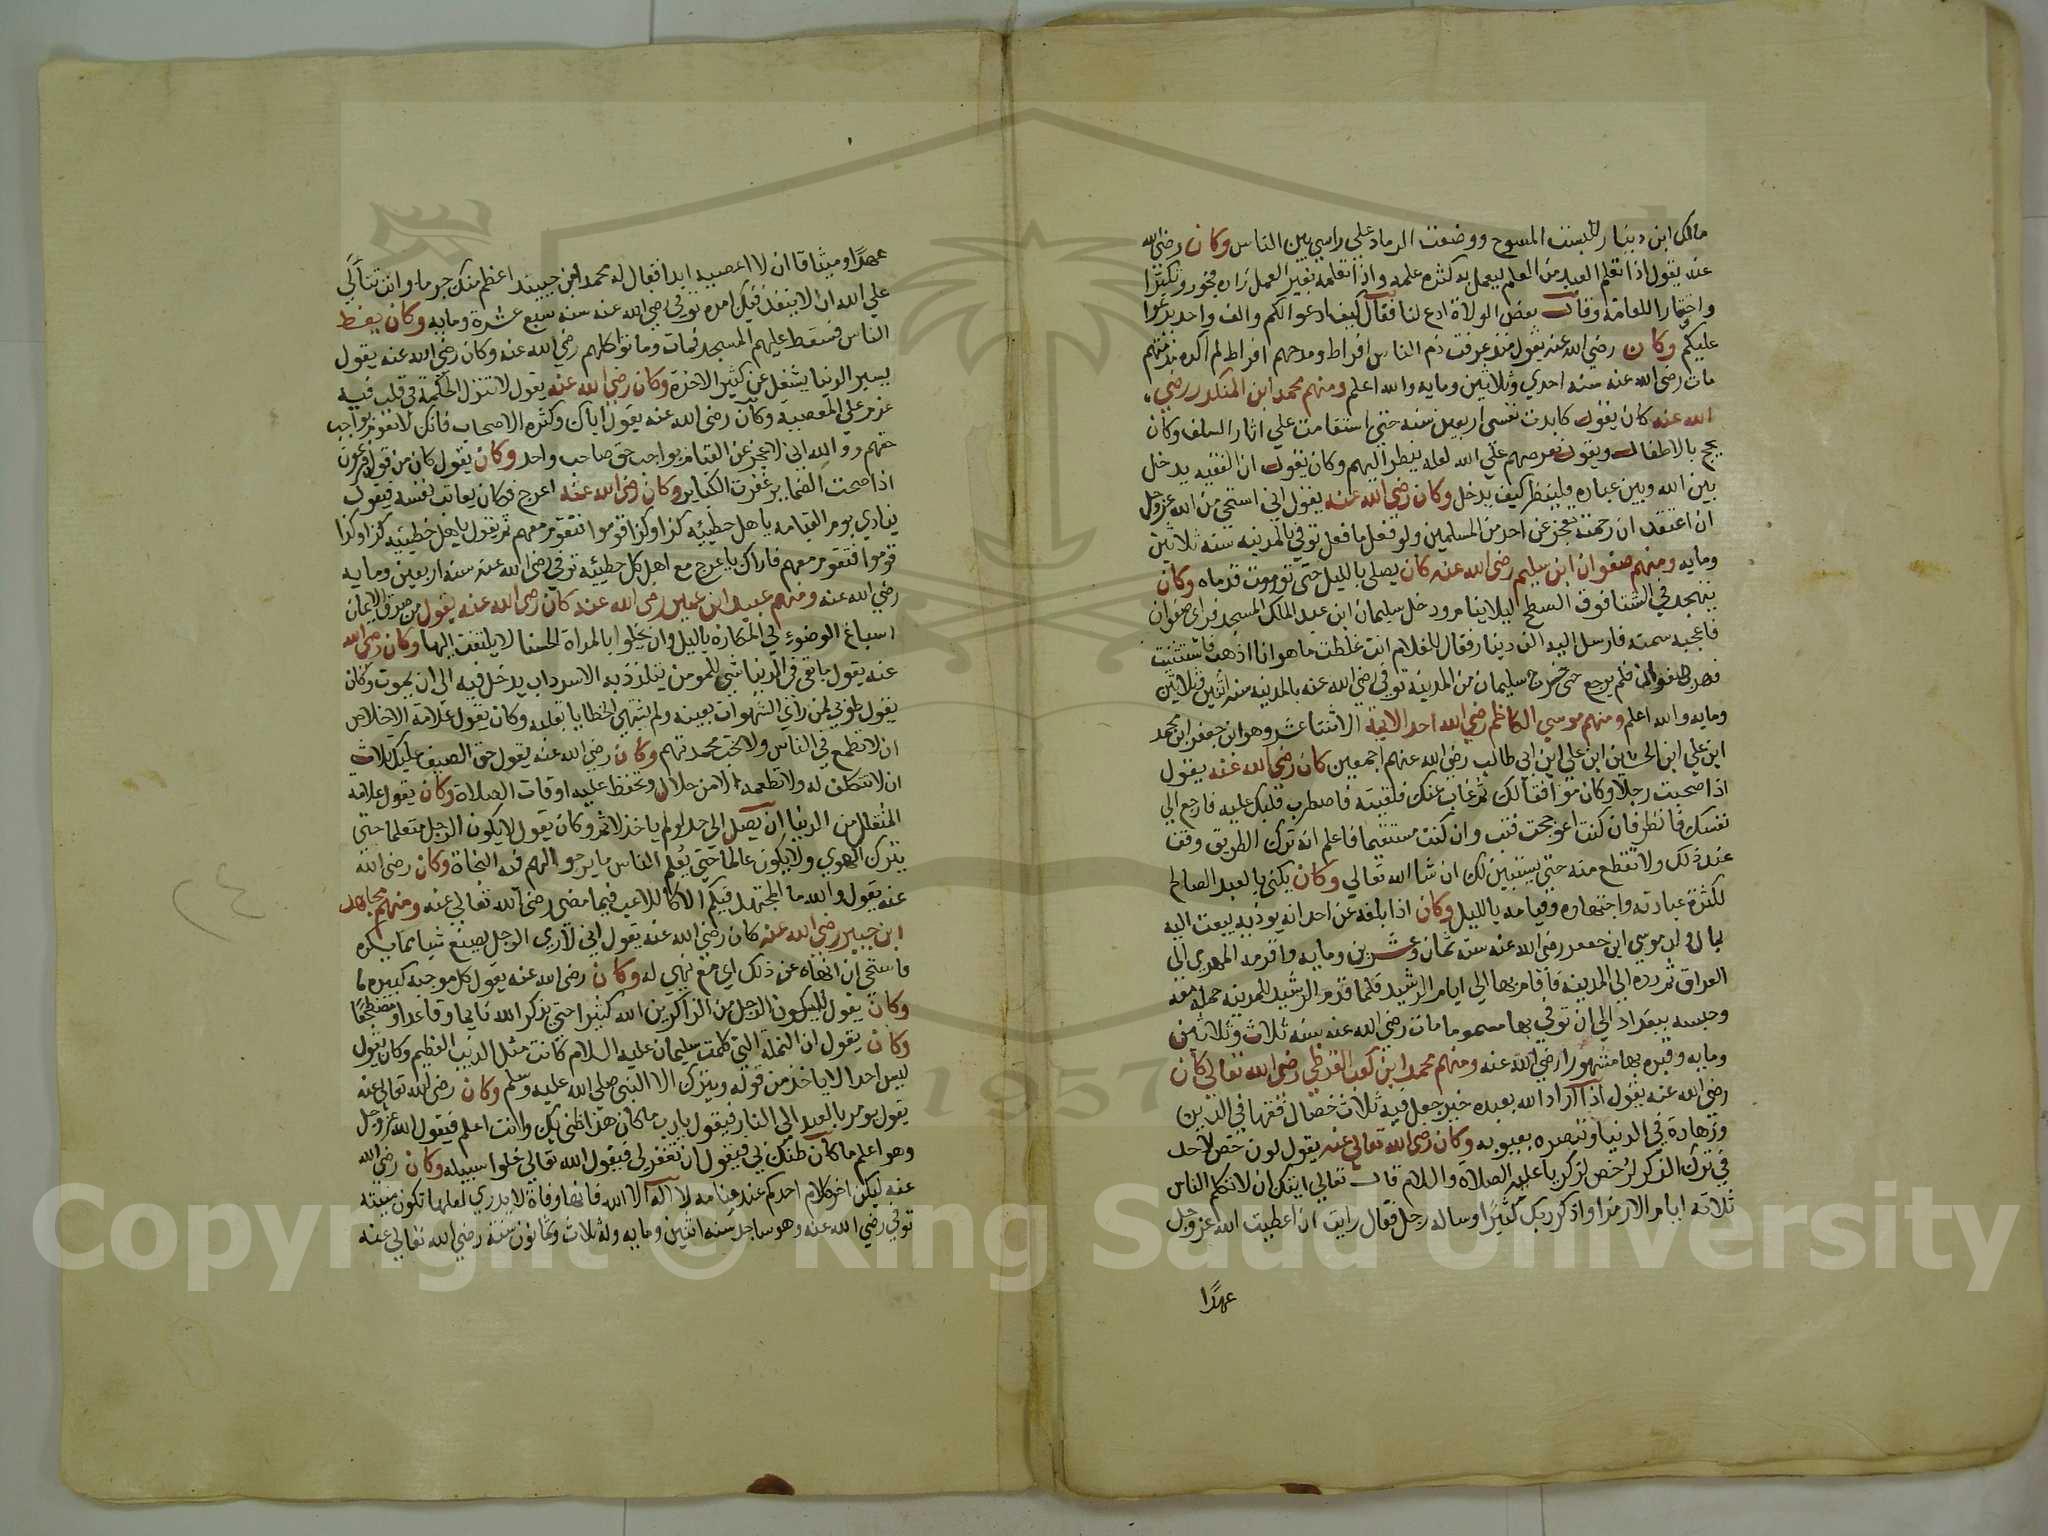 مالك ابن دينار للبست المسوح ووضعت الرماد علي راسي بين الناس وكان رضي الله
عنه يقول اذا تعلم العبد من العلم ليعمل به كثره علمه واذا تعلمه بغير العمل زاده فجورا وتكبرا
واحتقارا للعامة وقال بعض الولاة ادع لنا فقال كيف ادعوا لكم والف واحد يدعوا
عليكم وكان رضي الله عنه يقول منذ عرفت ذم الناس افراط ومدحهم افراط لم اكره مذمتهم
مات رضي الله عنه سنه احدي وثلاثين ومايه والله اعلم ومنهم محمد ابن المنكدر رضي
الله عنه كان يقول كابدت نفسي اربعين سنه حتي استقامت علي اثار السلف وكان
يحج بالاطفال ويقول نعرضهم علي الله لعله ينظر اليهم وكان يقول ان الفقيه يدخل
بين الله وبين عباده فلينظر كيف يدخل وكان رضي الله عنه يقول اني استحي من الله عز وجل
ان اعتقد ان رحمته تعجز عن احد من المسلمين ولو فعل ما فعل توفي بالمدينه سنه ثلاثين
ومايه ومنهم صفوان ابن سليم رضي الله عنه كان يصلي بالليل حتي تورمت قدماه وكان
يتهجد في الشتا فوق السطح ليلا ينام ودخل سليمان ابن عبد الملك المسجد فراي صفوان
فاعجبه سمته فارسل اليه الف دينار فقال للغلام انت غلطت ما هو انا اذهب فاستثبت
فهرب صفوان فلم يرجع حتي خرج سليمان من المدينه توفي رضي الله عنه بالمدينه سنه اثنين وثلاثين
ومايه والله اعلم ومنهم موسي الكاظم رضي الله احد الايمة الاثنتا عشر وهو ابن جعفر ابن محمد
ابن علي ابن الحسين ابن علي ابن ابي طالب رضي الله عنهم اجمعين كان رضي الله عنه يقول
اذا صحبت رجلا وكان موافقا لك ثم غاب عنك فلقيته فاضطرب قلبك عليه فارجع الي
نفسك فانظر فان كنت اعوججت فتب وان كنت مستقيما فاعلم انه ترك الطريق وقف
عند ذلك ولا تقطع منه حتي يستبين لك ان شا الله تعالي وكان يكني بالعبد الصالح
لكثرة عبادته واجتهاده وقيامه بالليل وكان اذا بلغه عن احد انه يوذيه يبعث اليه
بمال ولد موسي ابن جعفر رضي الله عنه سنه ثمان وعشرين ومايه واقدمه المهدي الي
العراق ثم رده الي المدينه فاقام بها الي ايام الرشيد فلما قدم الرشيد المدينه حمله معه
وحبسه ببغداد الي ان توفي بها مسموما مات رضي الله عنه سنه ثلاث وثلاثين
ومايه وقبره بها مشهورا رضي الله عنه ومنهم محمد ابن كعب القرظي رضي الله تعالي كان
رضي الله عنه يقول اذا اراد الله بعبده خيرا جعل فيه ثلاث خصال فقها في الدين
وزهادة في الدنيا وتبصره بعيوبه وكان رضي الله تعالي عنه يقول لو رخص لاحد
في ترك الذكر لرخص لزكريا عليه الصلاة والسلام قال تعالي ايتك ان لا تكلم الناس
ثلاثه ايام الا رمزا واذكر ربك كثيرا وساله رجل فقال رايت ان اعطيت الله عز وجل
عهدًا
عهدًا وميثاقا ان لا اعصيه ابدا فقال له محمد فمن حينيذ اعظم منك جرما وانت تتالي
علي الله ان لا ينفذ فيك امره توفي رضي الله عنه سنه سبع عشرة ومايه وكان يعظ
الناس فسقط عليهم المسجد فمات وماتوا كلهم رضي الله عنه وكان رضي الله عنه يقول
يسير الدنيا يشغل عن كثير الاخرة وكان رضي الله عنه يقول لا تنزل الحكمة في قلب فيه
عزم علي المعصية وكان رضي الله عنه يقول اياك وكثره الاصحاب فانك لا تقوم بواجب
حقهم ووالله اني لاعجز عن القيام بواجب حق صاحب واحد وكان يقول كان من قول فرعون
اذا صحت الضماير غفرت الكباير وكان رضي الله عنه اعرج فكان يعاتب نفسه فيقول
ينادي يوم القيامه يا هل خطيئه كذا وكذا قوموا فتقوم معهم ثم يقول يا هل خطيئه كذا وكذا
قوموا فتقوم معهم فاراك يا عرج مع اهل كل خطيئه توفي رضي الله عنه سنه اربعين ومايه
رضي الله عنه ومنهم عبيد ابن عمير رضي الله عنه كان رضي الله عنه يقول من صدق الايمان
اسباغ الوضوء في المكاره بالليل وان يخلوا بالمراة الحسنا لا يلتفت اليها وكان رضي الله
عنه يقول ما بقي في الدنيا شي للمومن يتلذذ به الا سرداب يدخل فيه الي ان يموت وكان
يقول طوبي لمن راي الشهوات بعينه ولم يشتهي الخطايا بقلبه وكان يقول علامة الاخلاص
ان لا تطمع في الناس ولا تحب محمدتهم وكان رضي الله عنه يقول حق الضيف عليك ثلاث
ان لا تتكلف له ولا تطعمه الا من حلال وتحفظ عليه اوقات الصلاة وكان يقول علامة
المتقلل من الدنيا ان يصل الي حد لو لم ياخذ لاثم وكان يقول لا يكون الرجل متعلما حتي
يترك الهوي ولا يكون عالما حتي يعلم الناس ما يرجوا لهم فيه النجاة وكان رضي الله
عنه يقول والله ما المجتهد فيكم الا كاللاعب فيما مضي رضي الله تعالي عنه ومنهم مجاهد
ابن جبير رضي الله عنه كان رضي الله عنه يقول اني لاري الرجل يصنع شيا مما يكره
فاستحي ان انهاه عن ذلك اي مع نهي له وكان رضي الله عنه يقول كل موجبه كبيرة
وكان يقول لا يكون الرجل من الذاكرين الله كثيرا حتي يذكر الله قايما وقاعدا ومضطجعًا
وكان يقول ان النملة التي كلمت سليمان عليه السلام كانت مثل الذيب العظيم وكان يقول
ليس احدا الا ياخذ من قوله ويترك الا النبي صلي الله عليه وسلم وكان رضي الله تعالي عنه
يقول يومر بالعبد الي النار فيقول يا رب ما كان هذا ظني بك وانت اعلم فيقول الله عز وجل
وهو اعلم ما كان ظنك بي فيقول ان تغفر لي فيقول الله تعالي خلوا سبيله وكان رضي الله
عنه ليكن اخر كلام احدكم عند منامه لا اله الا الله فانها وفاة لا يدري لعلها تكون منيته
توفي رضي الله عنه وهو ساجد سنه اثنين ومايه وله ثلاث وثمانون سنه رضي الله تعالي عنه
٢٤
1957
Copyright © King Saud University